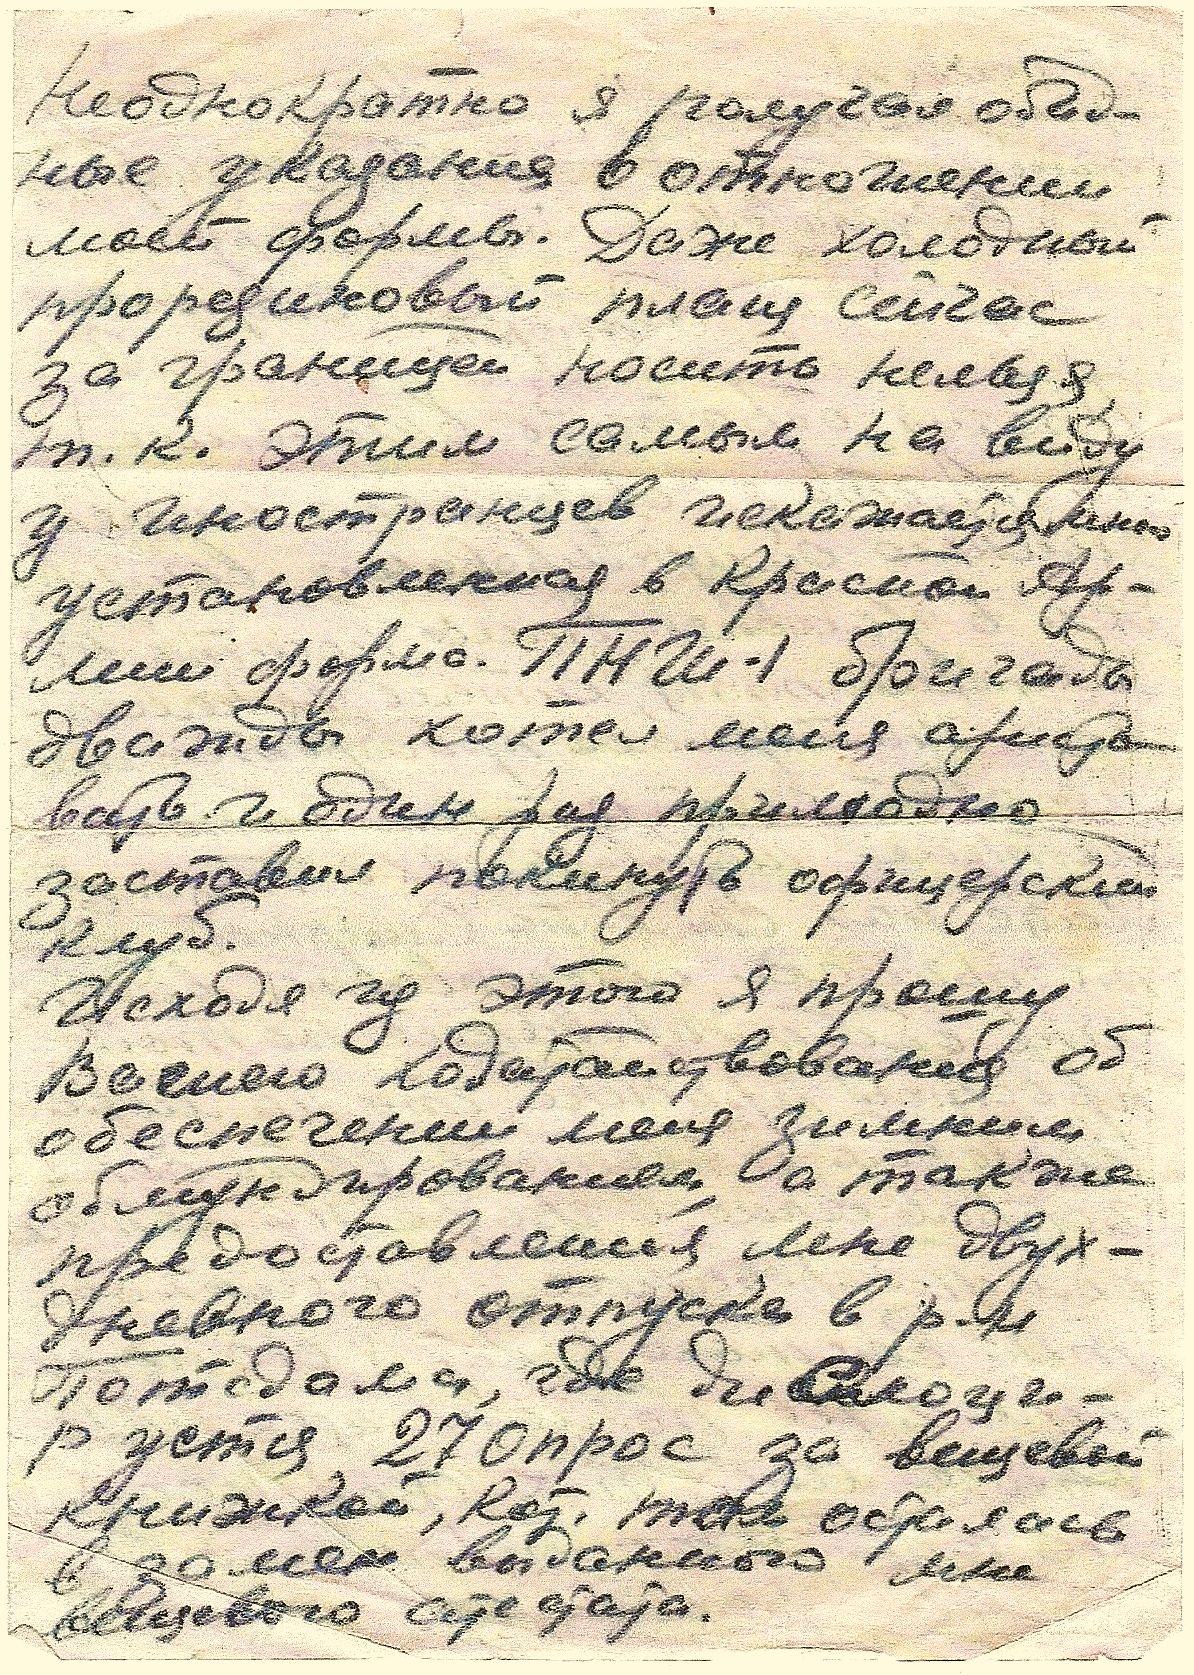 Неоднократно я получал обид-
ные указания в отношении
моей формы. Даже холодный
прорезиновый плащ сейчас
за границей носить нельзя,
т.к. этим самым на виду
у иностранцев искажается мною
установленная в Красной Ар-
мии форма. ПНШ-1 бригады
дважды хотел меня аресто-
вать и один раз прилюдно
заставил покинуть офицерский
клуб.
Исходя из этого я прошу
Вашего ходатайствования об
обеспечении меня зимним
обмундированием, а также
предоставления мне двух-
дневного отпуска в р-н
Потсдама, где дислоци-
руется 27 опрос за вещевой
книжкой, кот. там осталась
взамен выданного мне
вещевого аттестата.